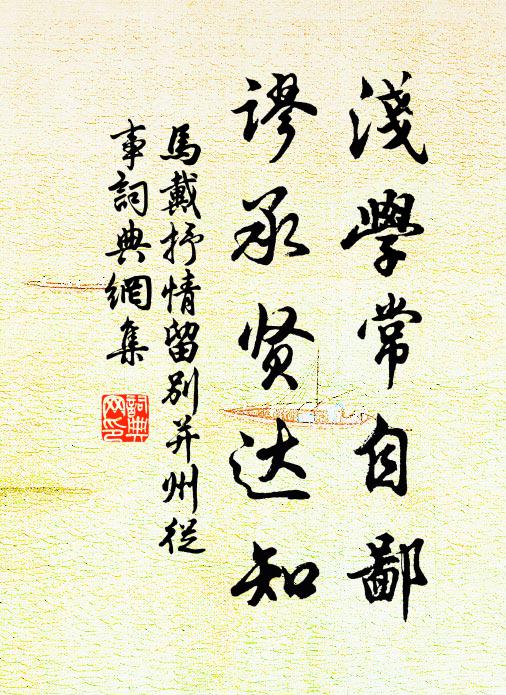 淺學常自鄙
謬承贤达知
馬戴抒情留别并州從
事詞典網集
詞典
网印